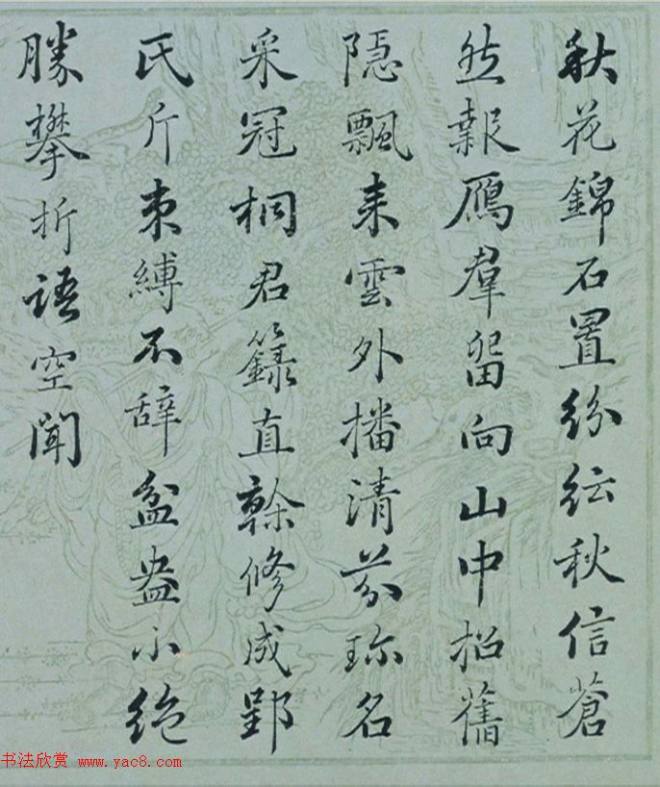 秋花錦石置紛紜秋信蒼
然報雁群留向山中招舊
隱飄来雲外播清芬珎名
采冠桐君籙直榦修成郢
氏斤束縛不辭盆盎小絶
勝攀折語空聞
书法欣赏 www.yac8.com